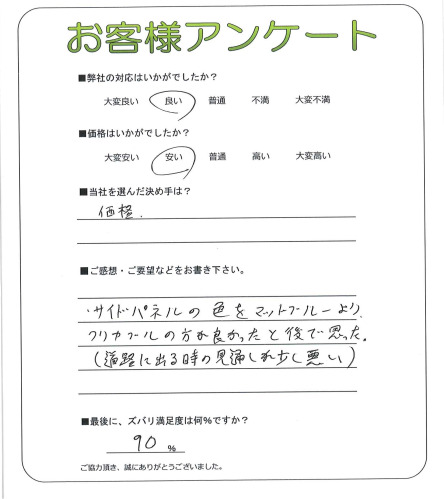 お客様アンケート
■弊社の対応はいかがでしたか?
大変良い 良い 普通 不満 大変不満
■価格はいかがでしたか?
大変安い 安い 普通 高い 大変高い
■当社を選んだ決め手は?
価格.
■ご感想・ご要望などをお書き下さい。
・サイドパネルの色をマットブルーより
クリアブルーの方が良かったと後で思った。
(道路に出る時の見通しが少し悪い)
■最後に、ズバリ満足度は何%ですか?
90 %
ご協力頂き、誠にありがとうございました。